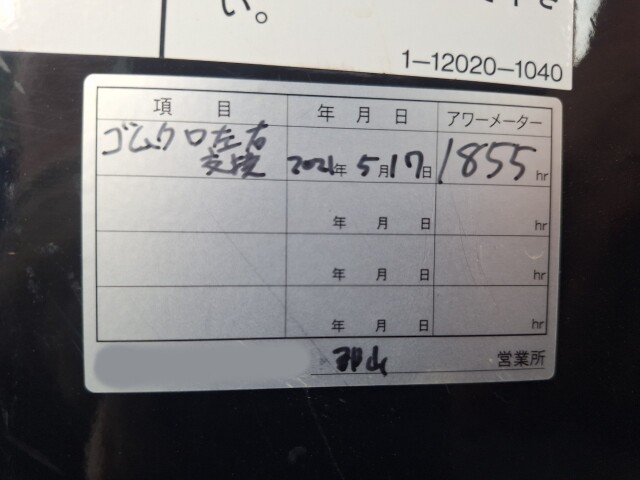 い。
1-12020-1040
項 目 年 月 日 アワーメーター
ゴムクロ左右
交換 2021年 5月17日 1855hr
年 月 日 hr
年 月 日 hr
年 月 日 hr
郡山 営業所